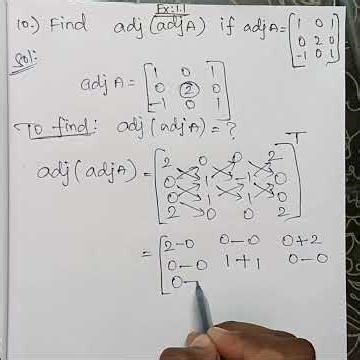 Ex:1.1
10.) Find adj(adjA) if adjA = [1 0 1
0 2 0
-1 0 1]
Sol:
adjA = [1 0 1
0 2 0
-1 0 1]
To find: adj(adjA) = ?
adj(adjA) = [2 0 0 2
0 1 -1 0
0 1 1 0
2 0 0 2]T
= [2-0 0-0 0+2
0-0 1+1 0-0
0-